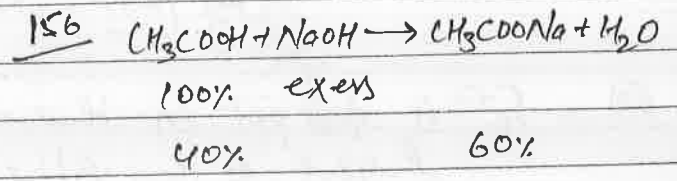 156 CH₃COOH + NaOH → CH₃COONa + H₂O
100% exess
40% 60%